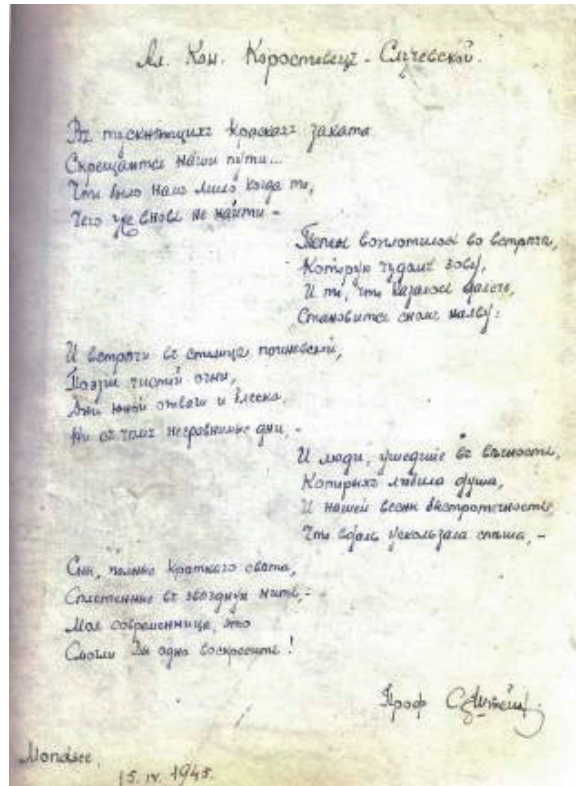 Ал. Кон. Коростовецъ-Случевской.
Въ тускнѣющихъ краскахъ заката
Скрещаются наши пути...
Что было намъ мило когда то,
Чего уже вновь не найти –
Теперь воплотилось во встрѣчи,
Которую чудомъ зову,
И то, что казалось далече,
Становится сномъ наяву:
И встрѣчи въ столицѣ невской,
Поэзіи чистой огни,
Дни юной отваги и блеска,
Ни съ чѣмъ несравнимые дни, –
И люди, ушедшіе въ вѣчность,
Которыхъ любила душа,
И нашей весны быстротечность,
Что вдаль ускользала спѣша, –
Сны, полные краткаго свѣта,
Сплетенные въ звѣздную нить, –
Моя современница, это
Смогли Вы одна воскресить!
Проф
Mondsee,
15. IV. 1945.